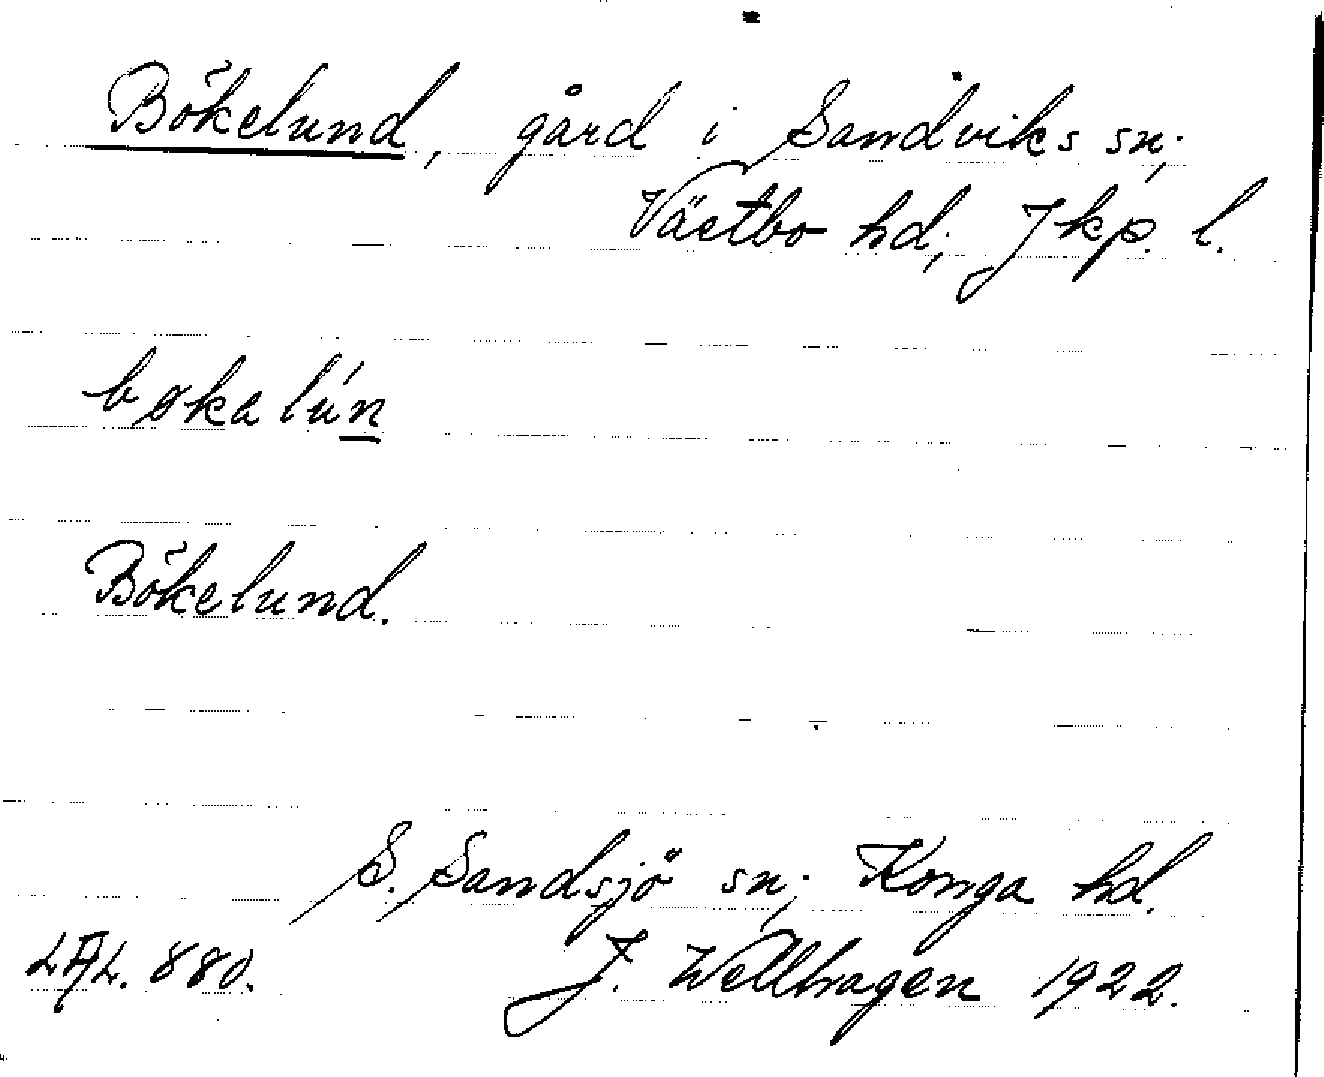 Bökelund, gård i Sandviks sn;
Västbo hd; Jkp. l.
bøkalún
Bökelund.
S. Sandsjö sn; Konga hd.
LAL. 880. J. Wellhagen 1922.